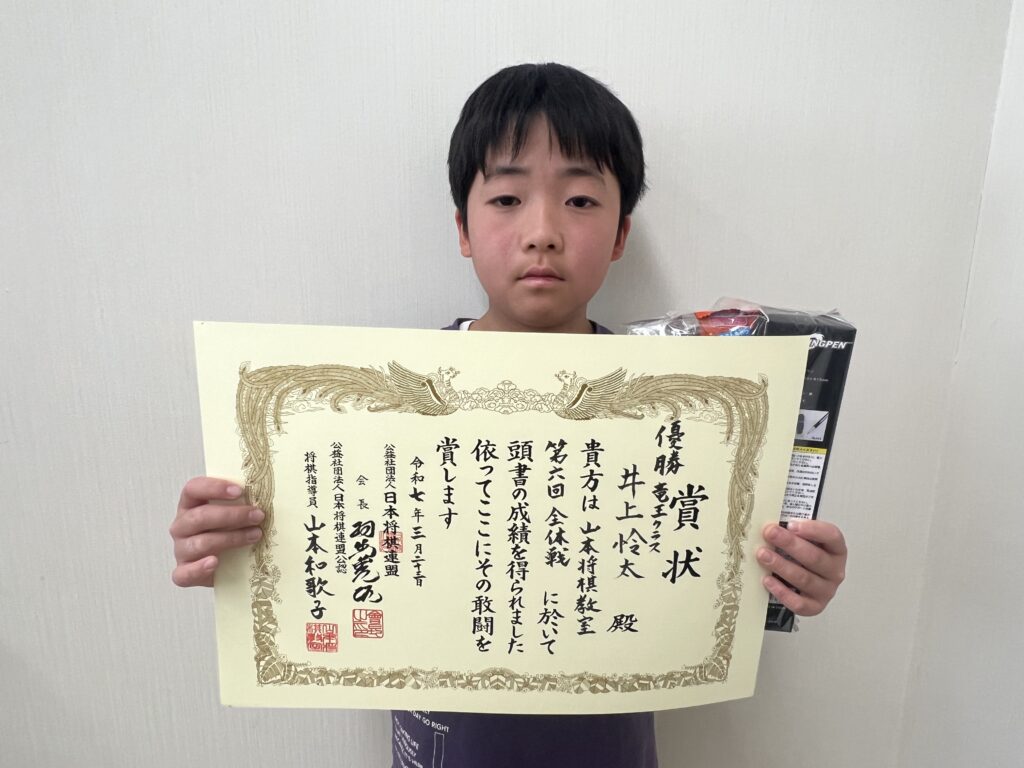 賞状
優勝 竜王クラス
井上怜太 殿
貴方は 山本将棋教室
第六回 全体戦 に於いて
頭書の成績を得られました
依ってここにその敢闘を
賞します
令和七年三月二十三日
公益社団法人日本将棋連盟
会長 羽生善治
公益社団法人日本将棋連盟公認
将棋指導員 山本和歌子
NGPEN
DAY GO RIGHT